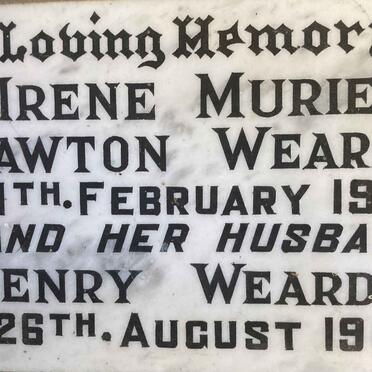 Loving Memor
IRENE MURIE
AWTON WEAR
1TH. FEBRUARY 19
AND HER HUSBA
ENRY WEARD
26TH. AUGUST 19